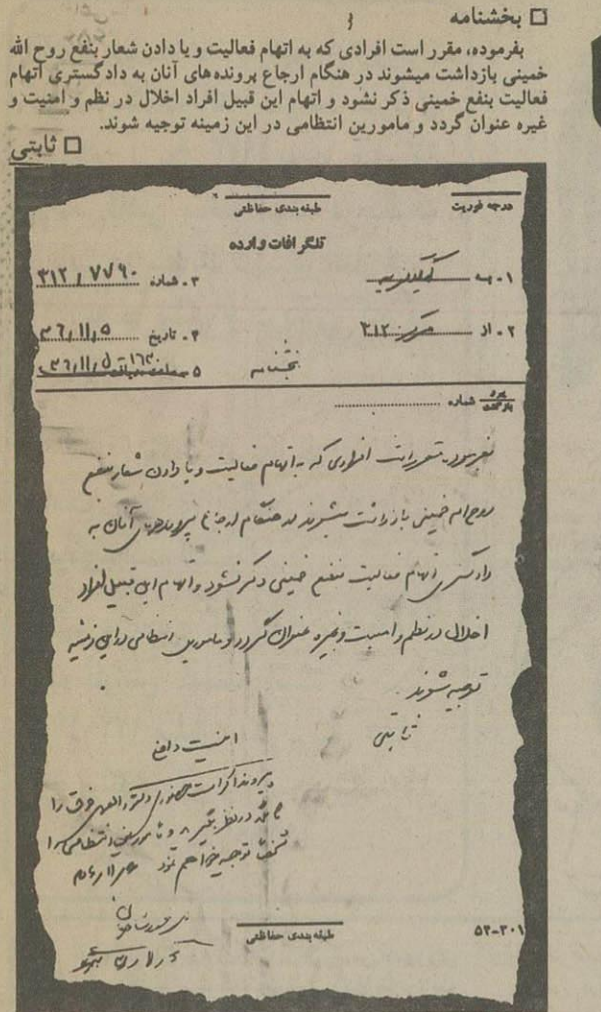 بخشنامه
بفرموده، مقرر است افرادی که به اتهام فعالیت و یا دادن شعار بنفع روح الله
خمینی بازداشت میشوند در هنگام ارجاع پرونده‌های آنان به دادگستری اتهام
فعالیت بنفع خمینی ذکر نشود و اتهام این قبیل افراد اخلال در نظم و امنیت و
غیره عنوان گردد و مامورین انتظامی در این زمینه توجیه شوند.
ثابتی
درجه فوریت
طبقه‌بندی حفاظتی
تلگرافات وارده
۱ - به
۳ - شماره ۳۱۲/۷۷۹۰
۲ - از مرکز ۳۱۲
۴ - تاریخ ۳۶/۱۱/۵
۵ - ۳۶/۱۱/۵
بخشنامه
شماره
بفرموده مقرر است افرادی که به اتهام فعالیت و یا دادن شعار بنفع
روح اله خمینی بازداشت میشوند در هنگام ارجاع پرونده‌های آنان به
دادگستری اتهام فعالیت بنفع خمینی ذکر نشود و اتهام این قبیل افراد
اخلال در نظم و امنیت و غیره عنوان گردد و مامورین انتظامی در این زمینه
توجیه شوند.
ثابتی
امنیت داخلی
فوق را
در نظر بگیرید و مامورین انتظامی را
توجیه خواهم نمود
طبقه‌بندی حفاظتی
۵۳-۳۰۱